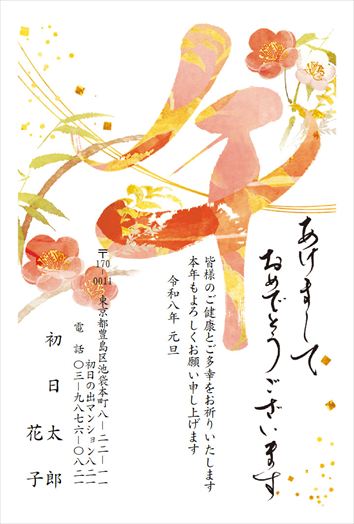 午
あけまして
おめでとうございます
皆様のご健康とご多幸をお祈りいたします
本年もよろしくお願い申し上げます
令和八年 元旦
〒170-0011 東京都豊島区池袋本町八-二二-一一
初日の出マンション八二一
電話 〇三-九八七六-〇〇八二
初日 太郎
花子